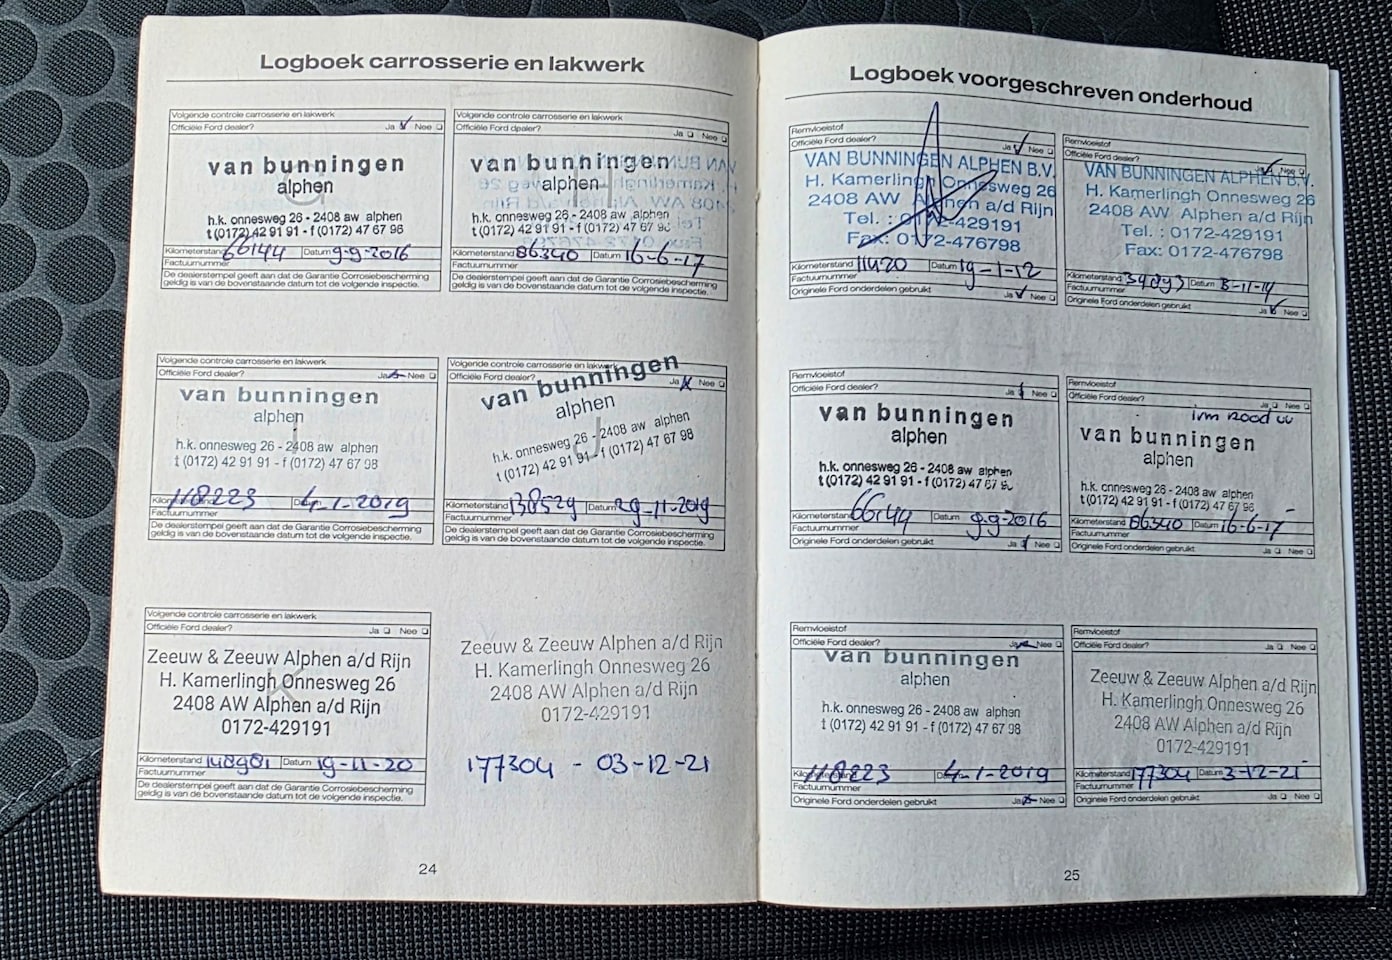 Logboek carrosserie en lakwerk
Volgende controle carrosserie en lakwerk
Officiële Ford dealer? Ja Nee
van bunningen
alphen
h.k. onnesweg 26 - 2408 aw alphen
t (0172) 42 91 91 - f (0172) 47 67 98
Kilometerstand 66144 Datum 9-9-2016
Factuurnummer
De dealerstempel geeft aan dat de Garantie Corrosiebescherming
geldig is van de bovenstaande datum tot de volgende inspectie.
Volgende controle carrosserie en lakwerk
Officiële Ford dealer? Ja Nee
van bunningen
alphen
h.k. onnesweg 26 - 2408 aw alphen
t (0172) 42 91 91 - f (0172) 47 67 98
Kilometerstand 86340 Datum 16-6-17
Factuurnummer
De dealerstempel geeft aan dat de Garantie Corrosiebescherming
geldig is van de bovenstaande datum tot de volgende inspectie.
Volgende controle carrosserie en lakwerk
Officiële Ford dealer? Ja Nee
van bunningen
alphen
h.k. onnesweg 26 - 2408 aw alphen
t (0172) 42 91 91 - f (0172) 47 67 98
118223 4-1-2019
Factuurnummer
De dealerstempel geeft aan dat de Garantie Corrosiebescherming
geldig is van de bovenstaande datum tot de volgende inspectie.
Volgende controle carrosserie en lakwerk
Officiële Ford dealer? Ja Nee
van bunningen
alphen
h.k. onnesweg 26 - 2408 aw alphen
t (0172) 42 91 91 - f (0172) 47 67 98
Kilometerstand 138529 Datum 29-11-2019
Factuurnummer
De dealerstempel geeft aan dat de Garantie Corrosiebescherming
geldig is van de bovenstaande datum tot de volgende inspectie.
Volgende controle carrosserie en lakwerk
Officiële Ford dealer? Ja Nee
Zeeuw & Zeeuw Alphen a/d Rijn
H. Kamerlingh Onnesweg 26
2408 AW Alphen a/d Rijn
0172-429191
Kilometerstand 148981 Datum 19-11-20
Factuurnummer
De dealerstempel geeft aan dat de Garantie Corrosiebescherming
geldig is van de bovenstaande datum tot de volgende inspectie.
Zeeuw & Zeeuw Alphen a/d Rijn
H. Kamerlingh Onnesweg 26
2408 AW Alphen a/d Rijn
0172-429191
177304 - 03-12-21
24
Logboek voorgeschreven onderhoud
Remvloeistof
Officiële Ford dealer? Ja Nee
VAN BUNNINGEN ALPHEN B.V.
H. Kamerlingh Onnesweg 26
2408 AW Alphen a/d Rijn
Tel. : 0172-429191
Fax: 0172-476798
Kilometerstand 11420 Datum 19-1-12
Factuurnummer
Originele Ford onderdelen gebruikt Ja Nee
Remvloeistof
Officiële Ford dealer? Ja Nee
VAN BUNNINGEN ALPHEN B.V.
H. Kamerlingh Onnesweg 26
2408 AW Alphen a/d Rijn
Tel. : 0172-429191
Fax: 0172-476798
Kilometerstand Datum
Factuurnummer
Originele Ford onderdelen gebruikt Ja Nee
Remvloeistof
Officiële Ford dealer? Ja Nee
van bunningen
alphen
h.k. onnesweg 26 - 2408 aw alphen
t (0172) 42 91 91 - f (0172) 47 67 98
Kilometerstand 66144 Datum 9-9-2016
Factuurnummer
Originele Ford onderdelen gebruikt Ja Nee
Remvloeistof
Officiële Ford dealer? Ja Nee
van bunningen
alphen
h.k. onnesweg 26 - 2408 aw alphen
t (0172) 42 91 91 - f (0172) 47 67 98
Kilometerstand 86340 Datum 16-6-17
Factuurnummer
Originele Ford onderdelen gebruikt Ja Nee
Remvloeistof
Officiële Ford dealer? Ja Nee
van bunningen
alphen
h.k. onnesweg 26 - 2408 aw alphen
t (0172) 42 91 91 - f (0172) 47 67 98
118223 4-1-2019
Factuurnummer
Originele Ford onderdelen gebruikt Ja Nee
Remvloeistof
Officiële Ford dealer? Ja Nee
Zeeuw & Zeeuw Alphen a/d Rijn
H. Kamerlingh Onnesweg 26
2408 AW Alphen a/d Rijn
0172-429191
Kilometerstand 177304 Datum 3-12-21
Factuurnummer
Originele Ford onderdelen gebruikt Ja Nee
25